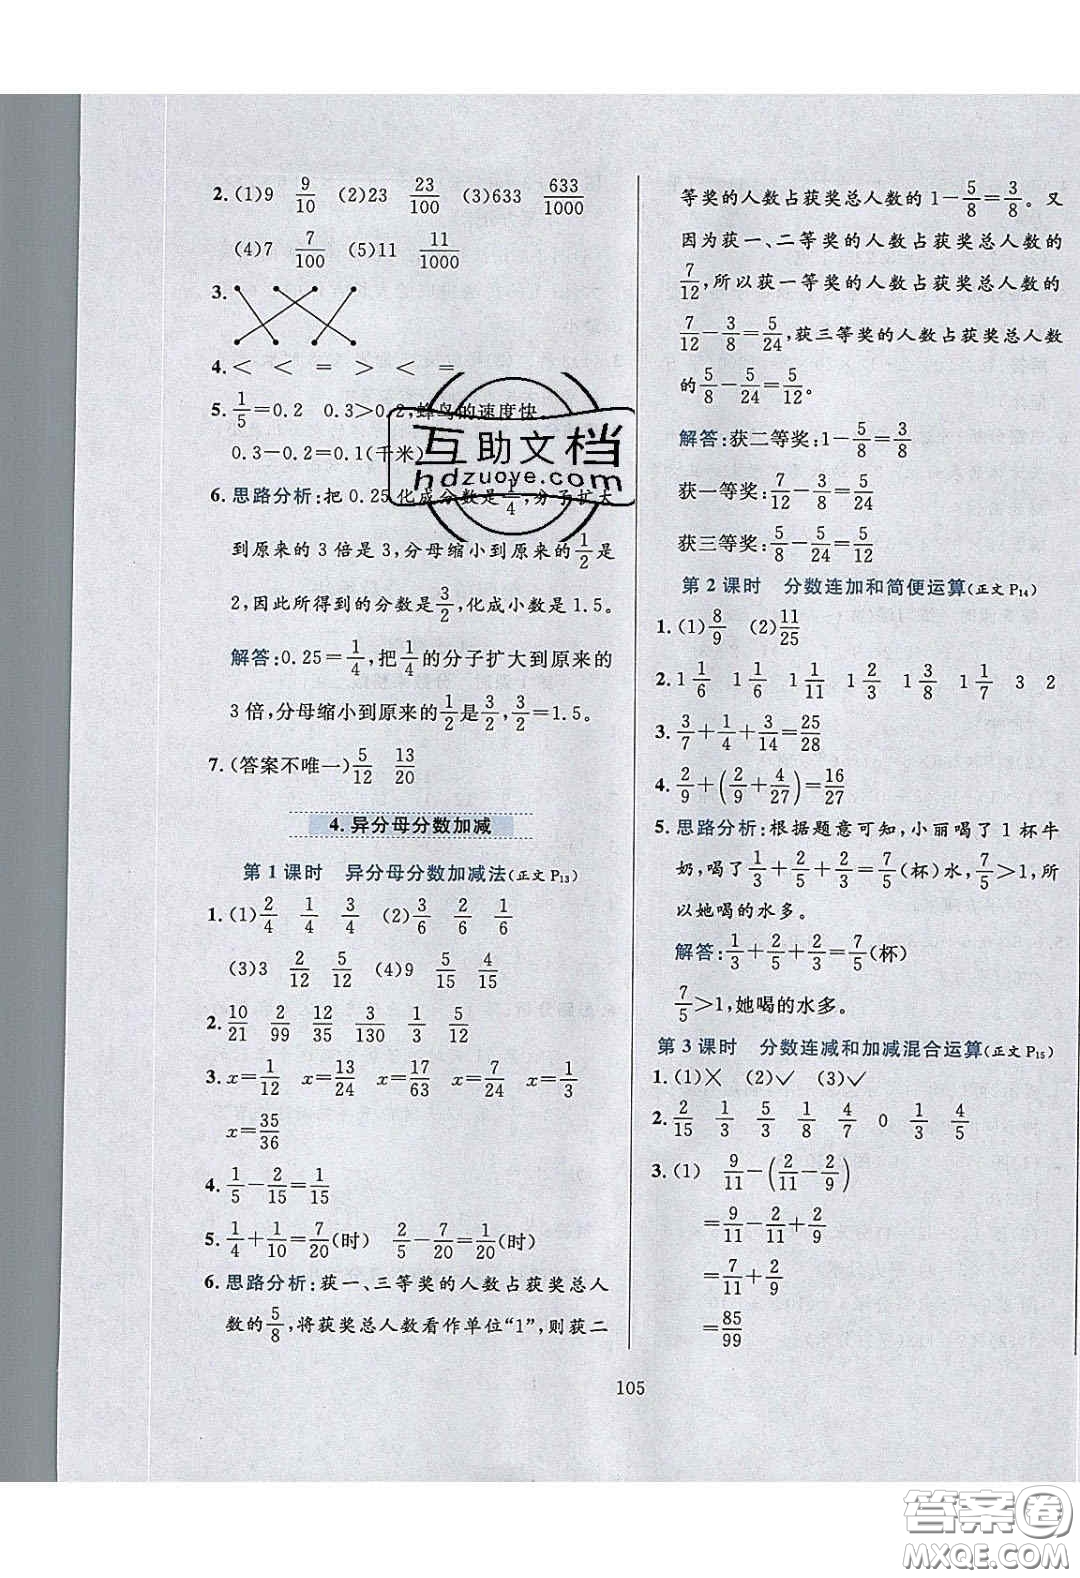 2. (1)9 9/10 (2)23 23/100 (3)633 633/1000
(4)7 7/100 (5)11 11/1000
3.
4. < < = > < =
5. 1/5=0.2 0.3>0.2,蜂鸟的速度快。
0.3-0.2=0.1(千米)
6. 思路分析:把 0.25 化成分数是 1/4,分子扩大
到原来的 3 倍是 3,分母缩小到原来的 1/2 是
2,因此所得到的分数是 3/2,化成小数是 1.5。
解答:0.25=1/4,把 1/4 的分子扩大到原来的
3 倍,分母缩小到原来的 1/2 是 3/2,3/2=1.5。
7. (答案不唯一) 5/12 13/20
4. 异分母分数加减
第 1 课时 异分母分数加减法(正文 P13)
1. (1) 2/4 1/4 3/4 (2) 3/6 2/6 1/6
(3)3 2/12 5/12 (4)9 5/15 4/15
2. 10/21 2/99 12/35 3/130 1/3 5/12
3. x=1/12 x=13/24 x=17/63 x=7/24 x=1/3
x=35/36
4. 1/5-2/15=1/15
5. 1/4+1/10=7/20(时) 2/5-7/20=1/20(时)
6. 思路分析:获一、三等奖的人数占获奖总人
数的 5/8,将获奖总人数看作单位“1”,则获二
等奖的人数占获奖总人数的 1-5/8=3/8。又
因为获一、二等奖的人数占获奖总人数的
7/12,所以获一等奖的人数占获奖总人数的
7/12-3/8=5/24,获三等奖的人数占获奖总人数
的 5/8-5/24=5/12。
解答:获二等奖:1-5/8=3/8
获一等奖:7/12-3/8=5/24
获三等奖:5/8-5/24=5/12
第 2 课时 分数连加和简便运算(正文 P14)
1. (1) 8/9 (2) 11/25
2. 1 1/6 1 1/2 1 1/11 1 2/3 1 3/8 1 1/7 3 2
3. 3/7+1/4+3/14=25/28
4. 2/9+(2/9+4/27)=16/27
5. 思路分析:根据题意可知,小丽喝了 1 杯牛
奶,喝了 1/3+2/5+2/3=7/5(杯)水,7/5>1,所
以她喝的水多。
解答:1/3+2/5+2/3=7/5(杯)
7/5>1,她喝的水多。
第 3 课时 分数连减和加减混合运算(正文 P15)
1. (1)× (2)✓ (3)✓
2. 2/15 1/3 5/3 1/8 4/7 0 1/3 4/5
3. (1) 9/11-(2/11-2/9)
=9/11-2/11+2/9
=7/11+2/9
=85/99
105
互助文档
hdzuoye.com
答案圈
MXQE.COM